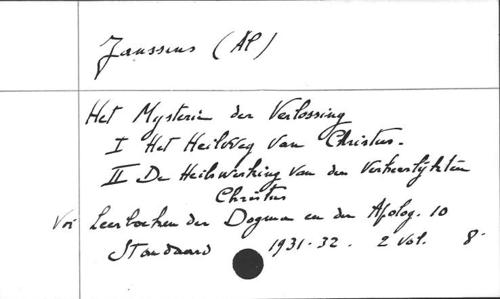 Janssens (Al)
Het Mysterie der Verlossing
I Het Heilsweg van Christus.
II De Heilswerking van den Verheerlijkten
Christus
Voi Leerboeken der Dogma en der Apolog. 10
Standaard 1931-32. 2 vol. 8°